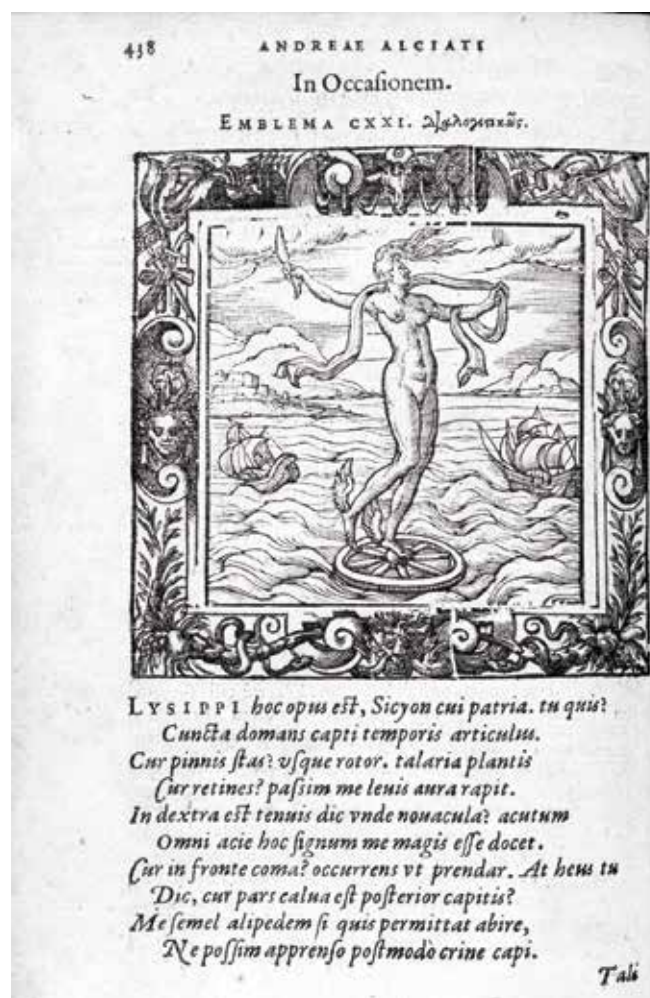 438 ANDREAE ALCIATI
In Occaſionem.
EMBLEMA CXXI. Διαλογικῶς.
LYSIPPI hoc opus eſt, Sicyon cui patria. tu quis?
Cuncta domans capti temporis articulus.
Cur pinnis ſtas? vſque rotor. talaria plantis
Cur retines? paſſim me leuis aura rapit.
In dextra eſt tenuis dic vnde nouacula? acutum
Omni acie hoc ſignum me magis eſſe docet.
Cur in fronte coma? occurrens vt prendar. At heus tu
Dic, cur pars calua eſt poſterior capitis?
Me ſemel alipedem ſi quis permittat abire,
Ne poſſim apprenſo poſtmodò crine capi.
Tali